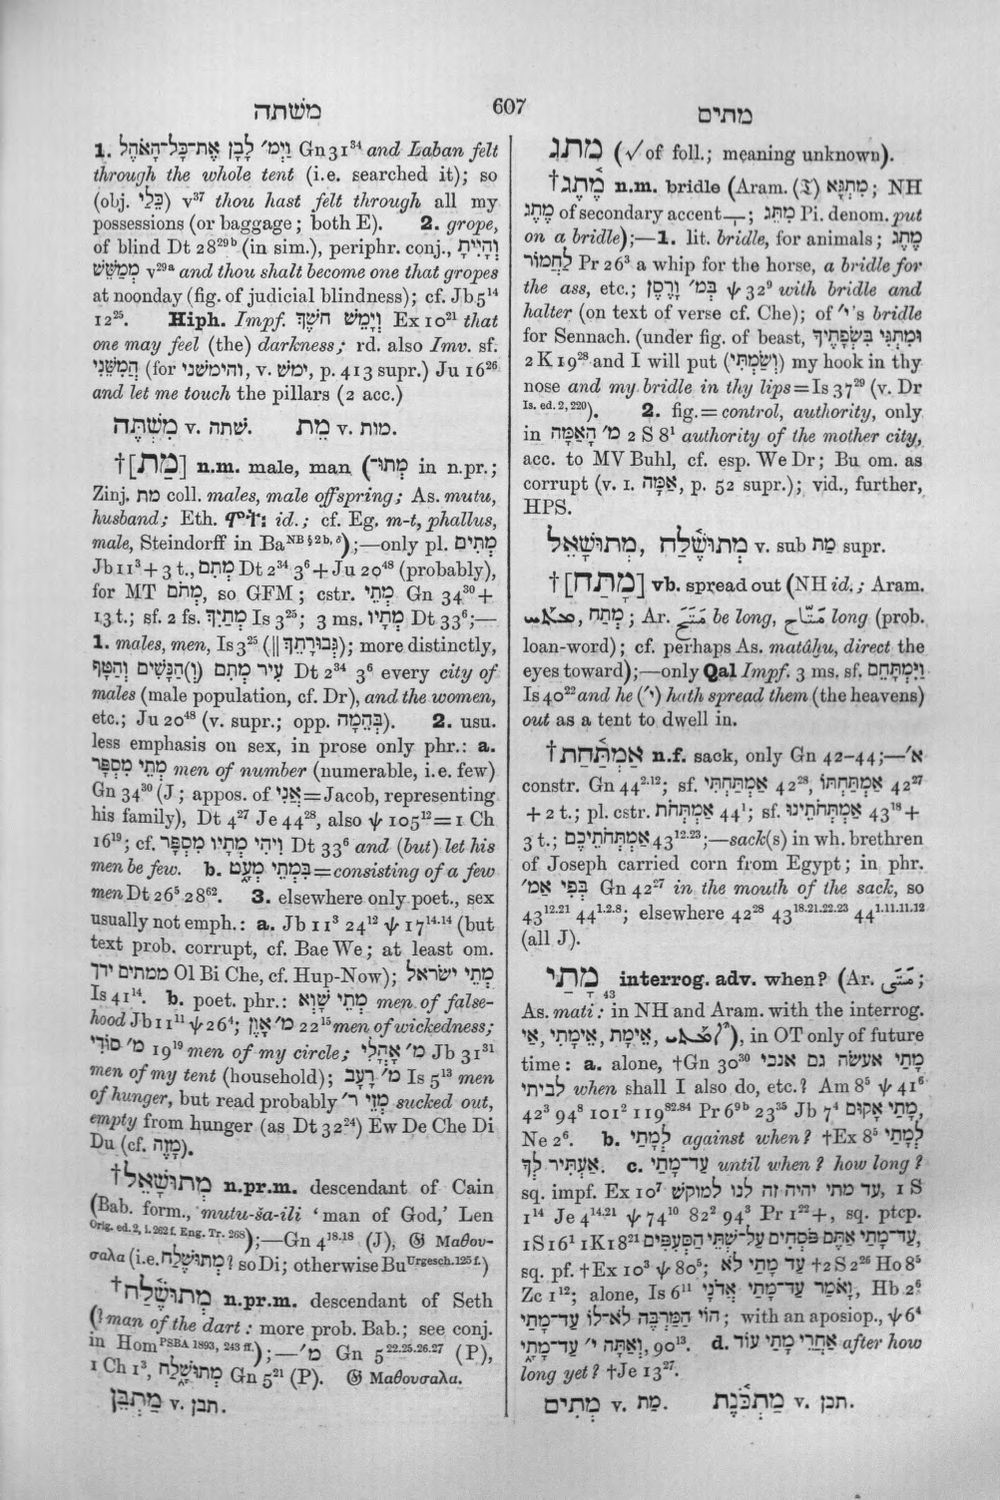 משתה
607
מתים
1. וַיְמ׳ לָבָן אֶת־כָּל־הָאֹהֶל Gn 31³⁴ and Laban felt
through the whole tent (i.e. searched it); so
(obj. כֵּלַי) v³⁷ thou hast felt through all my
possessions (or baggage; both E). 2. grope,
of blind Dt 28²⁹ᵇ (in sim.), periphr. conj., וְהָיִיתָ
מְמַשֵּׁשׁ v²⁹ᵃ and thou shalt become one that gropes
at noonday (fig. of judicial blindness); cf. Jb 5¹⁴
12²⁵. Hiph. Impf. וְיָמֵשׁ חשֶׁךְ Ex 10²¹ that
one may feel (the) darkness; rd. also Imv. sf.
הֲמִשֵׁנִי (for והימשני, v. ימש, p. 413 supr.) Ju 16²⁶
and let me touch the pillars (2 acc.)
מִשְׁתֶּה v. שתה. מֵת v. מות.
†[מַת] n.m. male, man (מְתוּ־ in n.pr.;
Zinj. מת coll. males, male offspring; As. mutu,
husband; Eth. ምት፡ id.; cf. Eg. m-t, phallus,
male, Steindorff in Ba NB § 2b, 6);—only pl. מְתִים
Jb 11³ + 3 t., מְתִם Dt 2³⁴ 3⁶ + Ju 20⁴⁸ (probably),
for MT מְתֹם, so GFM; cstr. מְתֵי Gn 34³⁰ +
13 t.; sf. 2 fs. מְתַיִךְ Is 3²⁵; 3 ms. מְתָיו Dt 33⁶;—
1. males, men, Is 3²⁵ (‖ גְּבוּרָתֵךְ); more distinctly,
עִיר מְתִם (וְ)הַנָּשִׁים וְהַטָּף Dt 2³⁴ 3⁶ every city of
males (male population, cf. Dr), and the women,
etc.; Ju 20⁴⁸ (v. supr.; opp. בְּהֵמָה). 2. usu.
less emphasis on sex, in prose only phr.: a.
מְתֵי מִסְפָּר men of number (numerable, i.e. few)
Gn 34³⁰ (J; appos. of אֲנִי = Jacob, representing
his family), Dt 4²⁷ Je 44²⁸, also ψ 105¹² = 1 Ch
16¹⁹; cf. וִיהִי מְתָיו מִסְפָּר Dt 33⁶ and (but) let his
men be few. b. בִּמְתֵי מְעָט = consisting of a few
men Dt 26⁵ 28⁶². 3. elsewhere only poet., sex
usually not emph.: a. Jb 11³ 24¹² ψ 17¹⁴·¹⁴ (but
text prob. corrupt, cf. Bae We; at least om.
ממתים ידך Ol Bi Che, cf. Hup-Now); מְתֵי ישׂראל
Is 41¹⁴. b. poet. phr.: מְתֵי שָׁוְא men of false-
hood Jb 11¹¹ ψ 26⁴; מ׳ אָוֶן 22¹⁵ men of wickedness;
מ׳ סוֹדִי 19¹⁹ men of my circle; מ׳ אָהֳלִי Jb 31³¹
men of my tent (household); מ׳ רָעָב Is 5¹³ men
of hunger, but read probably מְזֵי ר׳ sucked out,
empty from hunger (as Dt 32²⁴) Ew De Che Di
Du (cf. מָזֶה).
†מְתוּשָׁאֵל n.pr.m. descendant of Cain
(Bab. form., mutu-ša-ili ‘man of God,’ Len
Orig. ed. 2, i. 262 f. Eng. Tr. 268);—Gn 4¹⁸·¹⁸ (J), 𝔊 Μαθου-
σαλα (i.e. מְתוּשֶׁלַח? so Di; otherwise Bu Urgesch. 125 f.)
†מְתוּשֶׁלַח n.pr.m. descendant of Seth
(? man of the dart: more prob. Bab.; see conj.
in Hom PSBA 1893, 243 ff.);—מ׳ Gn 5²²·²⁵·²⁶·²⁷ (P),
1 Ch 1³, מְתוּשָׁלַח Gn 5²¹ (P). 𝔊 Μαθουσαλα.
מַתְבֵּן v. תבן.
מתג (√ of foll.; meaning unknown).
†מֶתֶג n.m. bridle (Aram. (𝔗) מִתְגָּא; NH
מֶתֶג of secondary accent —; מִתֵּג Pi. denom. put
on a bridle);—1. lit. bridle, for animals; מֶתֶג
לַחֲמוֹר Pr 26³ a whip for the horse, a bridle for
the ass, etc.; בְּמ׳ וָרֶסֶן ψ 32⁹ with bridle and
halter (on text of verse cf. Che); of י׳'s bridle
for Sennach. (under fig. of beast, וּמִתְגִּי בִּשְׂפָתֶיךָ
2 K 19²⁸ and I will put (וְשַׂמְתִּי) my hook in thy
nose and my bridle in thy lips = Is 37²⁹ (v. Dr
Is. ed. 2, 220). 2. fig. = control, authority, only
in מ׳ הָאַמָּה 2 S 8¹ authority of the mother city,
acc. to MV Buhl, cf. esp. We Dr; Bu om. as
corrupt (v. I. אַמָּה, p. 52 supr.); vid., further,
HPS.
מְתוּשֶׁלַח, מְתוּשָׁאֵל v. sub מַת supr.
†[מָתַח] vb. spread out (NH id.; Aram.
ܡܬܚ, מְתַח; Ar. مَتَحَ be long, مَتَّاح long (prob.
loan-word); cf. perhaps As. matâḫu, direct the
eyes toward);—only Qal Impf. 3 ms. sf. וַיִּמְתָּחֵם
Is 40²² and he (י׳) hath spread them (the heavens)
out as a tent to dwell in.
†אַמְתַּחַת n.f. sack, only Gn 42–44;—א׳
constr. Gn 44²·¹²; sf. אַמְתַּחְתִּי 42²⁸, אַמְתַּחְתּוֹ 42²⁷
+ 2 t.; pl. cstr. אַמְתְּחֹת 44¹; sf. אַמְתְּחֹתֵינוּ 43¹⁸ +
3 t.; אַמְתְּחֹתֵיכֶם 43¹²·²³;—sack(s) in wh. brethren
of Joseph carried corn from Egypt; in phr.
בְּפִי אַמ׳ Gn 42²⁷ in the mouth of the sack, so
43¹²·²¹ 44¹·²·⁸; elsewhere 42²⁸ 43¹⁸·²¹·²²·²³ 44¹·¹¹·¹¹·¹²
(all J).
מָתַי 43 interrog. adv. when? (Ar. مَتَى;
As. mati: in NH and Aram. with the interrog.
אַי, אֵימָתַי, אֵימָת, ܐܡܬܝ), in OT only of future
time: a. alone, †Gn 30³⁰ מָתַי אעשׂה גם אנכי
לביתי when shall I also do, etc.? Am 8⁵ ψ 41⁶
42³ 94⁸ 101² 119⁸²·⁸⁴ Pr 6⁹ᵇ 23³⁵ Jb 7⁴ מָתַי אָקוּם,
Ne 2⁶. b. לְמָתַי against when? †Ex 8⁵ לְמָתַי
אַעְתִּיר לְךָ. c. עַד־מָתַי until when? how long?
sq. impf. Ex 10⁷ עד מתי יהיה זה לנו למוקשׁ, 1 S
1¹⁴ Je 4¹⁴·²¹ ψ 74¹⁰ 82² 94³ Pr 1²² +, sq. ptcp.
1 S 16¹ 1 K 18²¹ עַד־מָתַי אַתֶּם פֹּסְחִים עַל־שְׁתֵּי הַסְּעִפִּים,
sq. pf. †Ex 10³ ψ 80⁵; עַד מָתַי לֹא †2 S 2²⁶ Ho 8⁵
Zc 1¹²; alone, Is 6¹¹ וָאֹמַר עַד־מָתַי אֲדֹנָי, Hb 2⁶
הוֹי הַמַּרְבֶּה לֹא־לוֹ עַד־מָתַי; with an aposiop., ψ 6⁴
וְאַתָּה י׳ עַד־מָתָי, 90¹³. d. אַחֲרֵי מָתַי עוֹד after how
long yet? †Je 13²⁷.
מְתִים v. מַת. מַתְכֹּנֶת v. תכן.